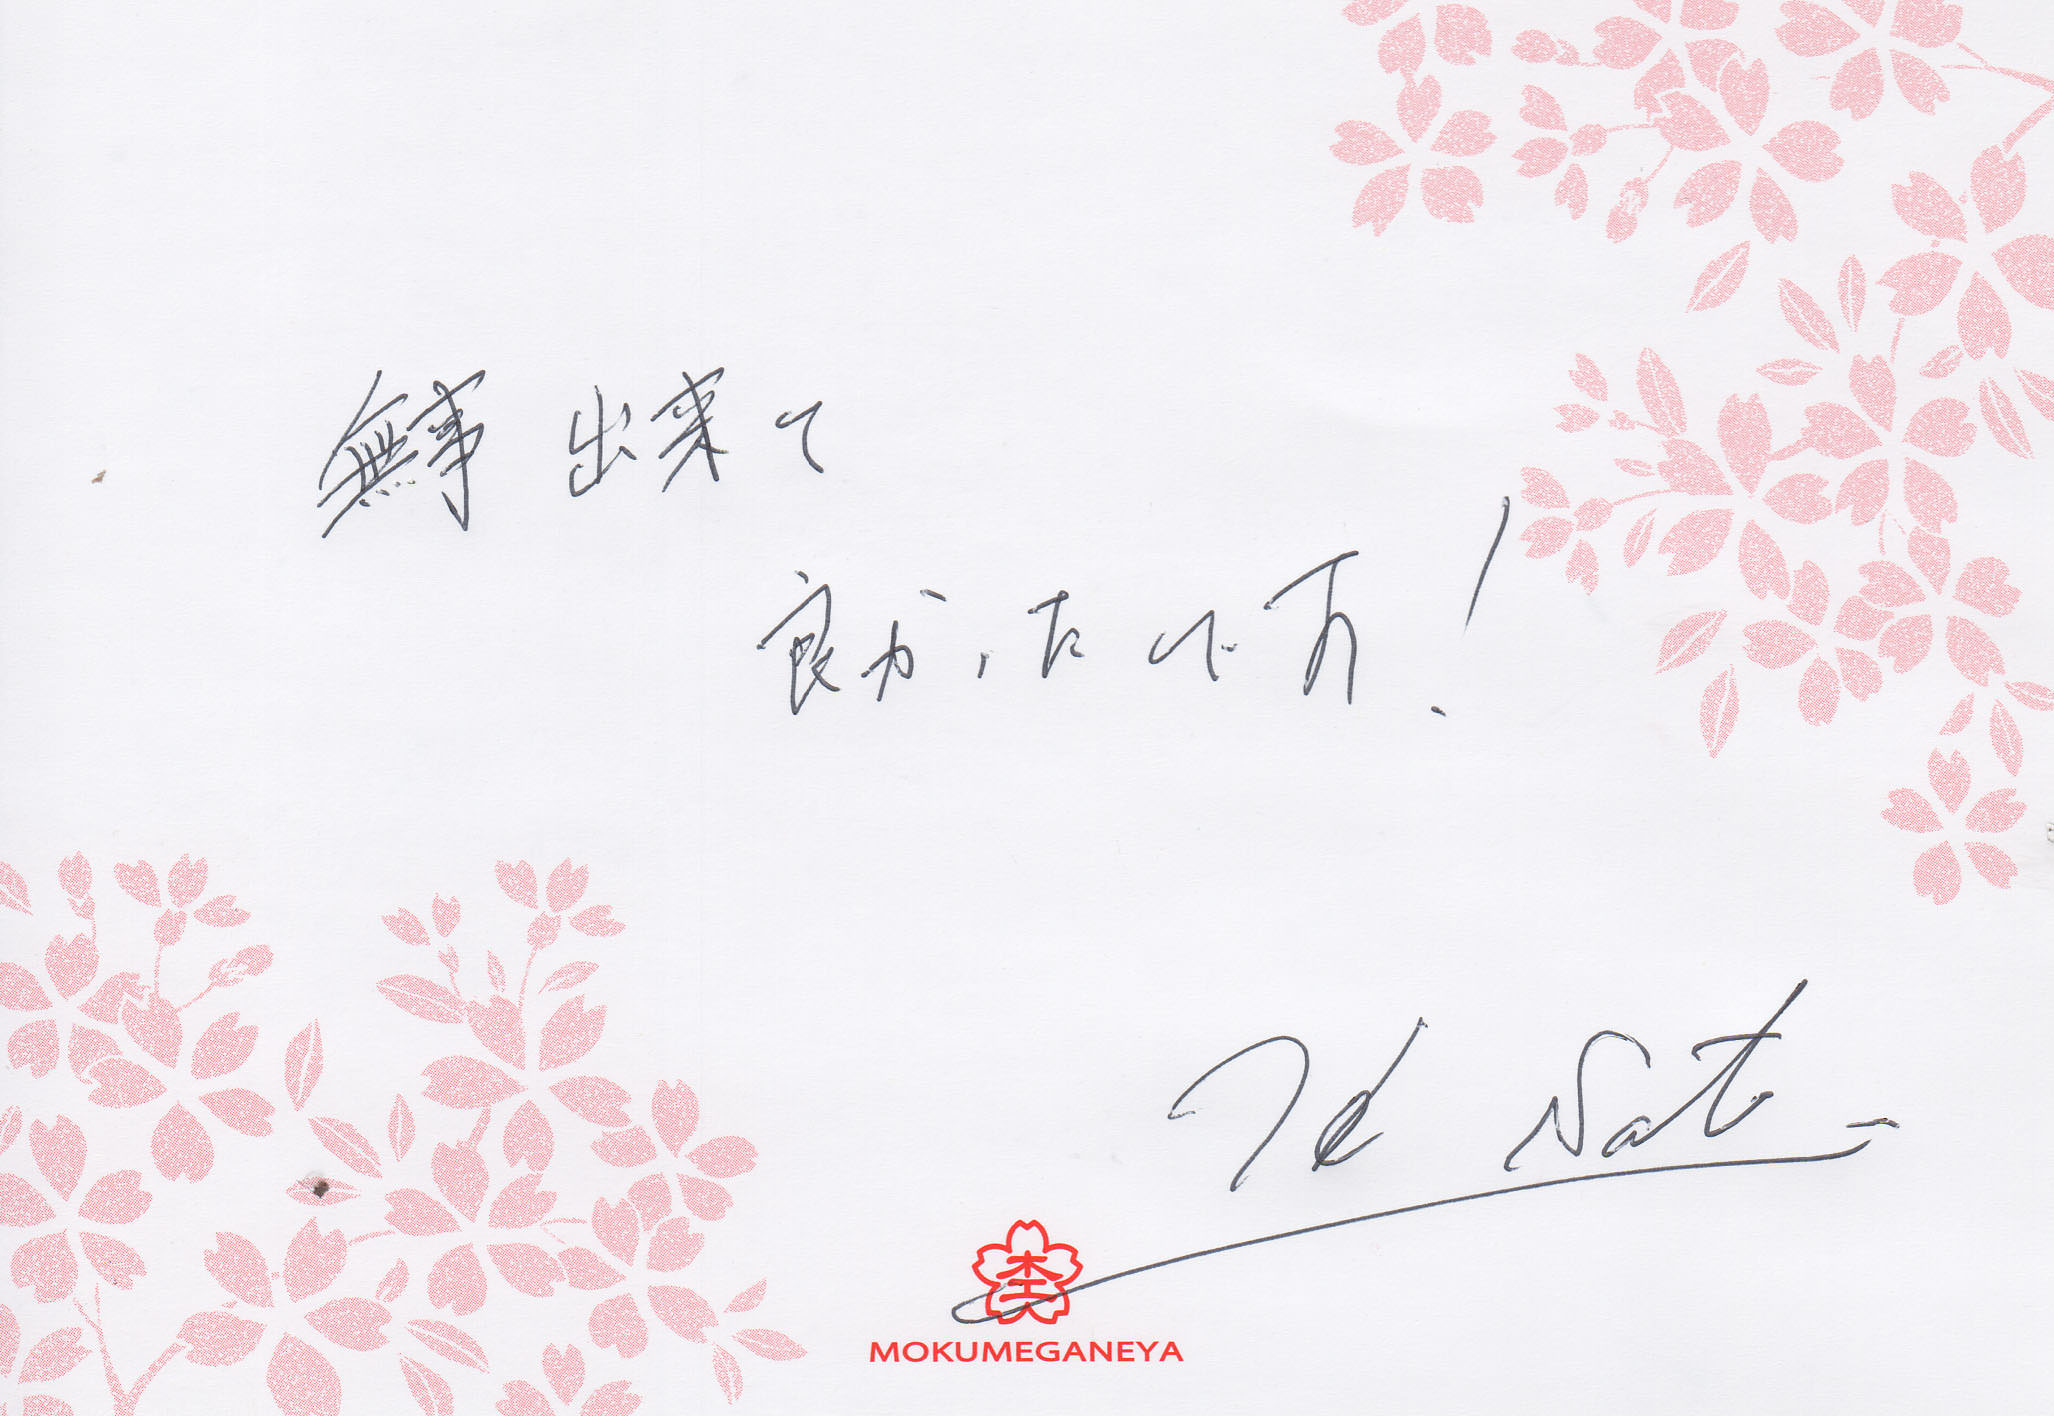 無事 出来て
良かったです!
MOKUMEGANEYA